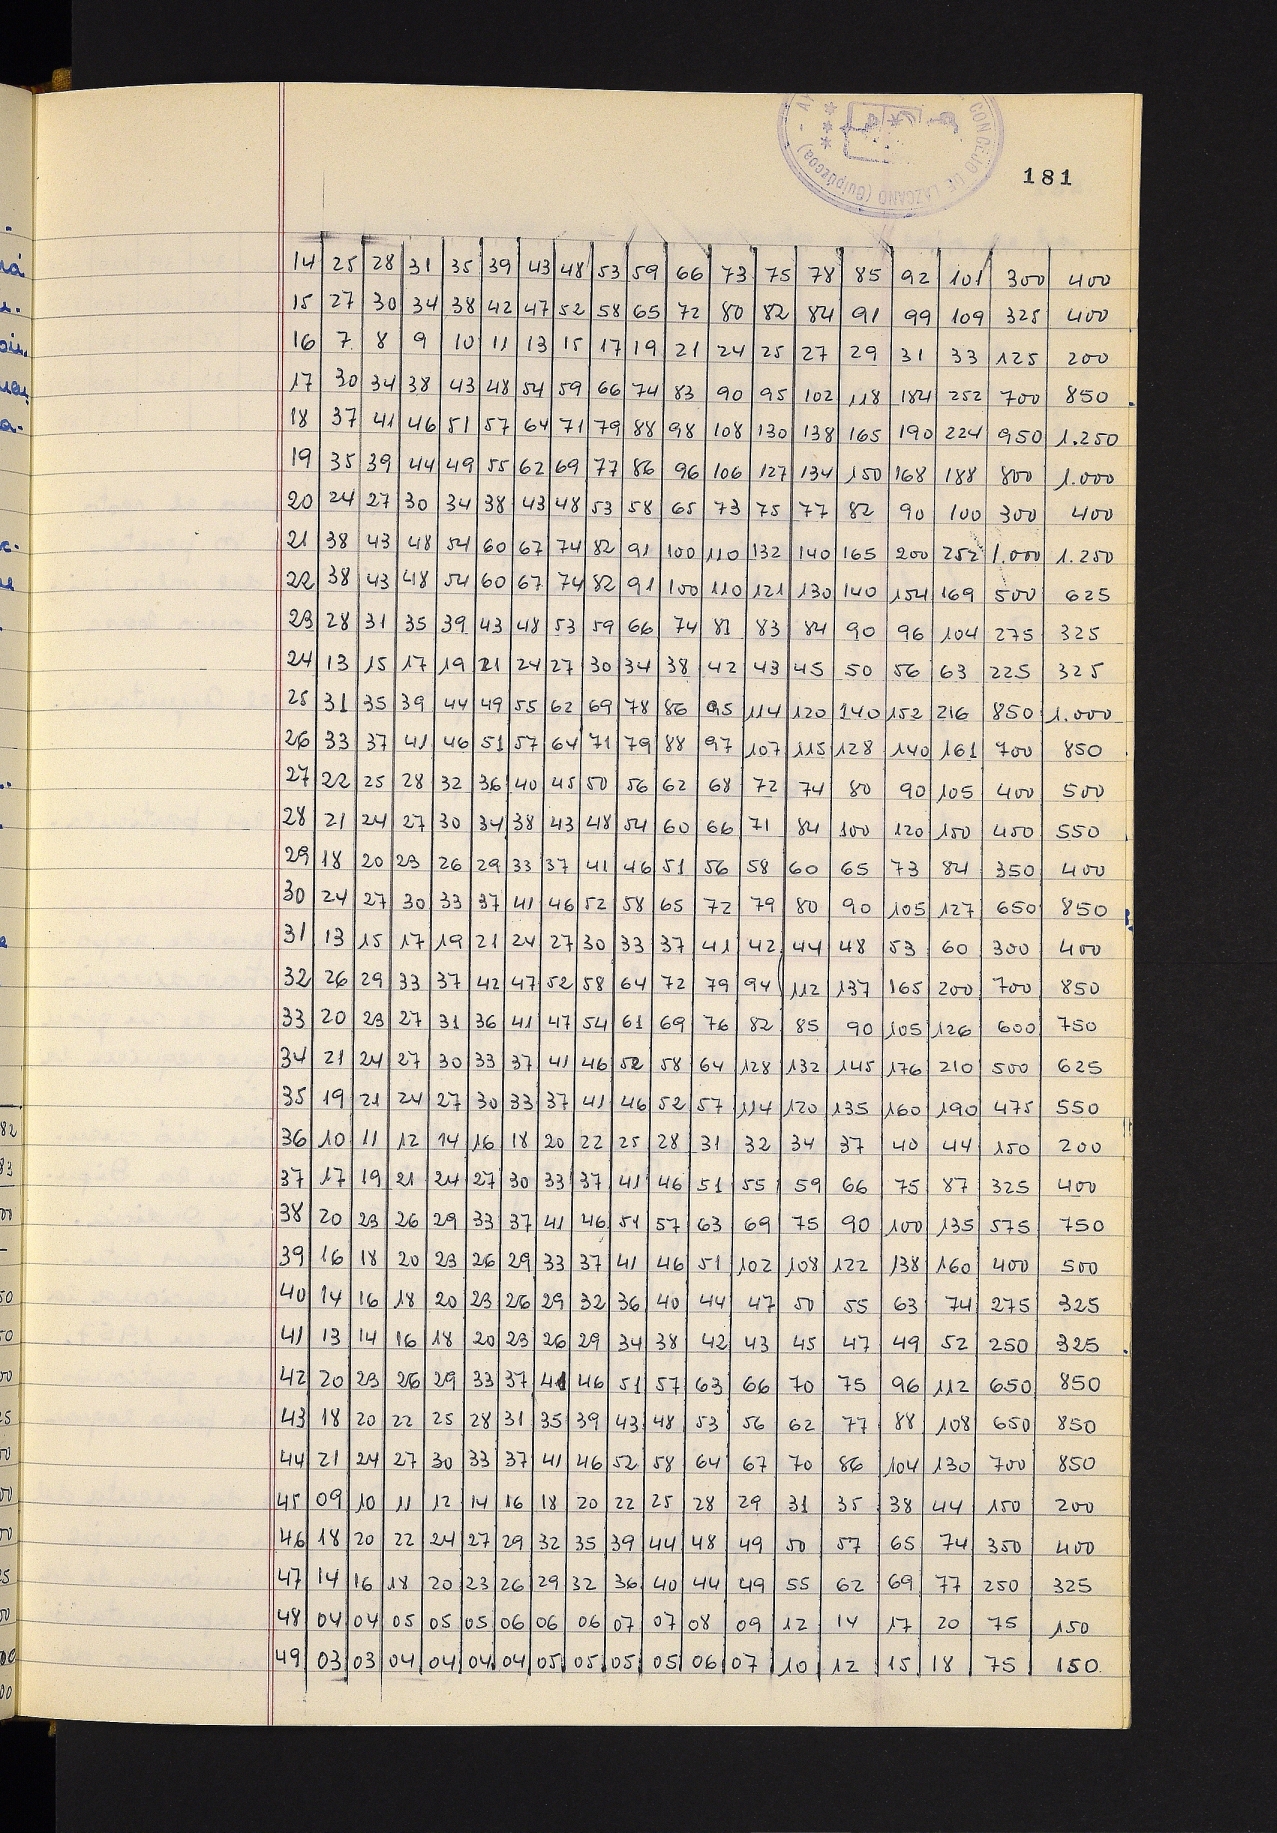 CONCEJO DE LAZCANO (Guipúzcoa)
181
14 25 28 31 35 39 43 48 53 59 66 73 75 78 85 92 101 300 400
15 27 30 34 38 42 47 52 58 65 72 80 82 84 91 99 109 325 400
16 7 8 9 10 11 13 15 17 19 21 24 25 27 29 31 33 125 200
17 30 34 38 43 48 54 59 66 74 83 90 95 102 118 184 252 700 850
18 37 41 46 51 57 64 71 79 88 98 108 130 138 165 190 224 950 1.250
19 35 39 44 49 55 62 69 77 86 96 106 127 134 150 168 188 800 1.000
20 24 27 30 34 38 43 48 53 58 65 73 75 77 82 90 100 300 400
21 38 43 48 54 60 67 74 82 91 100 110 132 140 165 200 252 1.000 1.250
22 38 43 48 54 60 67 74 82 91 100 110 121 130 140 154 169 500 625
23 28 31 35 39 43 48 53 59 66 74 81 83 84 90 96 104 275 325
24 13 15 17 19 21 24 27 30 34 38 42 43 45 50 56 63 225 325
25 31 35 39 44 49 55 62 69 78 86 95 114 120 140 152 216 850 1.000
26 33 37 41 46 51 57 64 71 79 88 97 107 115 128 140 161 700 850
27 22 25 28 32 36 40 45 50 56 62 68 72 74 80 90 105 400 500
28 21 24 27 30 34 38 43 48 54 60 66 71 84 100 120 150 450 550
29 18 20 23 26 29 33 37 41 46 51 56 58 60 65 73 84 350 400
30 24 27 30 33 37 41 46 52 58 65 72 79 80 90 105 127 650 850
31 13 15 17 19 21 24 27 30 33 37 41 42 44 48 53 60 300 400
32 26 29 33 37 42 47 52 58 64 72 79 94 112 137 165 200 700 850
33 20 23 27 31 36 41 47 54 61 69 76 82 85 90 105 126 600 750
34 21 24 27 30 33 37 41 46 52 58 64 128 132 145 176 210 500 625
35 19 21 24 27 30 33 37 41 46 52 57 114 120 135 160 190 475 550
36 10 11 12 14 16 18 20 22 25 28 31 32 34 37 40 44 150 200
37 17 19 21 24 27 30 33 37 41 46 51 55 59 66 75 87 325 400
38 20 23 26 29 33 37 41 46 51 57 63 69 75 90 100 135 575 750
39 16 18 20 23 26 29 33 37 41 46 51 102 108 122 138 160 400 500
40 14 16 18 20 23 26 29 32 36 40 44 47 50 55 63 74 275 325
41 13 14 16 18 20 23 26 29 34 38 42 43 45 47 49 52 250 325
42 20 23 26 29 33 37 41 46 51 57 63 66 70 75 96 112 650 850
43 18 20 22 25 28 31 35 39 43 48 53 56 62 77 88 108 650 850
44 21 24 27 30 33 37 41 46 52 58 64 67 70 86 104 130 700 850
45 09 10 11 12 14 16 18 20 22 25 28 29 31 35 38 44 150 200
46 18 20 22 24 27 29 32 35 39 44 48 49 50 57 65 74 350 400
47 14 16 18 20 23 26 29 32 36 40 44 49 55 62 69 77 250 325
48 04 04 05 05 05 06 06 06 07 07 08 09 12 14 17 20 75 150
49 03 03 04 04 04 04 05 05 05 05 06 07 10 12 15 18 75 150